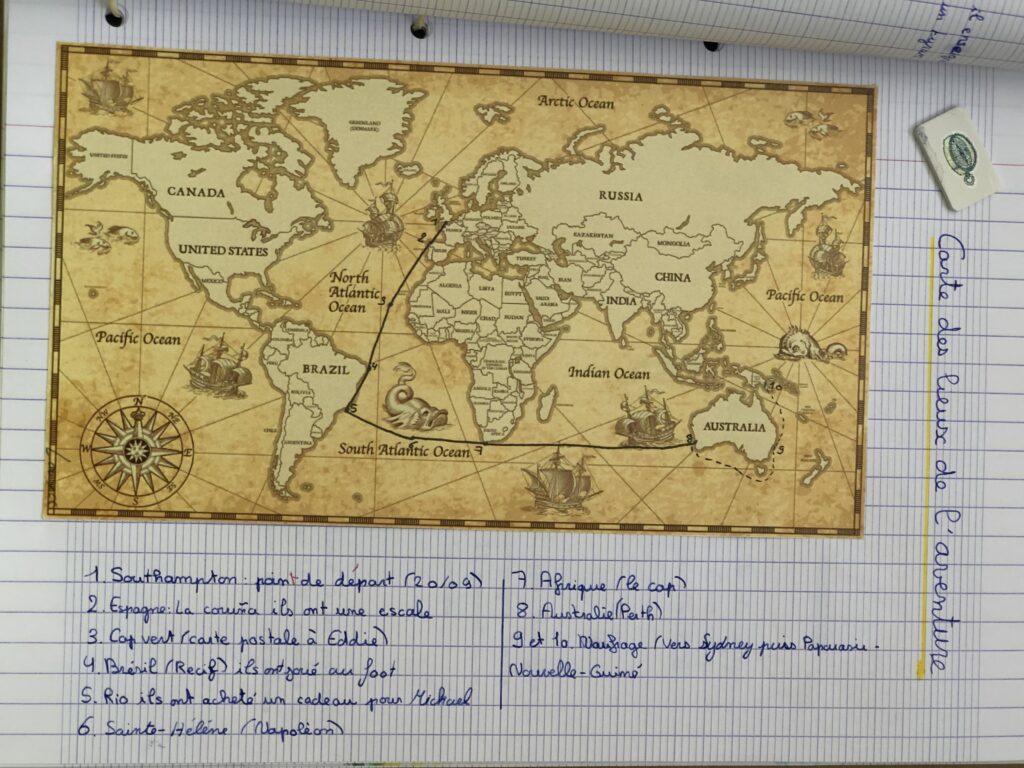 il ense
un
Carte des lieux de l'aventure
Arctic Ocean
GREENLAND
(DENMARK)
UNITED STATES
CANADA
RUSSIA
UNITED STATES
MEXICO
KAZAKHSTAN
MONGOLIA
CHINA
INDIA
TURKEY
IRAN
FRANCE
UKRAINE
ALGERIA
LIBYA
EGYPT
SAUDI
ARABIA
MALI
NIGER
CHAD
SUDAN
North
Atlantic
Ocean
Pacific Ocean
Pacific Ocean
BRAZIL
BOLIVIA
CHILE
ARGENTINA
Indian Ocean
AUSTRALIA
South Atlantic Ocean
N
NE
E
SE
S
SW
W
NW
2
3
4
5
6
7
8
9
10
1. Southampton: point de départ (20/09)
2. Espagne: La coruña ils ont une escale
3. Cap vert (carte postale à Eddie)
4 Brésil (Recif) ils ont joué au foot
5. Rio ils ont acheté un cadeau pour Michael
6. Sainte-Hélène (Napoléon)
7. Afrique (le cap)
8. Australie (Perth)
9 et 10. Naufrage (vers Sydney puis Papouasie-
Nouvelle-Guiné